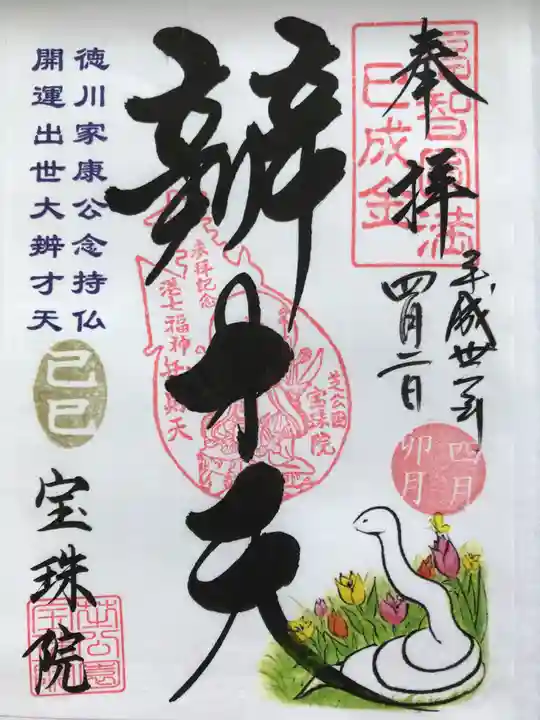 奉拝
平成卅一年
四月二日
福智圓法
巳成金
四月
卯月
辨才天
参拝記念
港七福神
弁財天
芝公園
宝珠院
徳川家康公念持仏
開運出世大辨才天
己巳
宝珠院